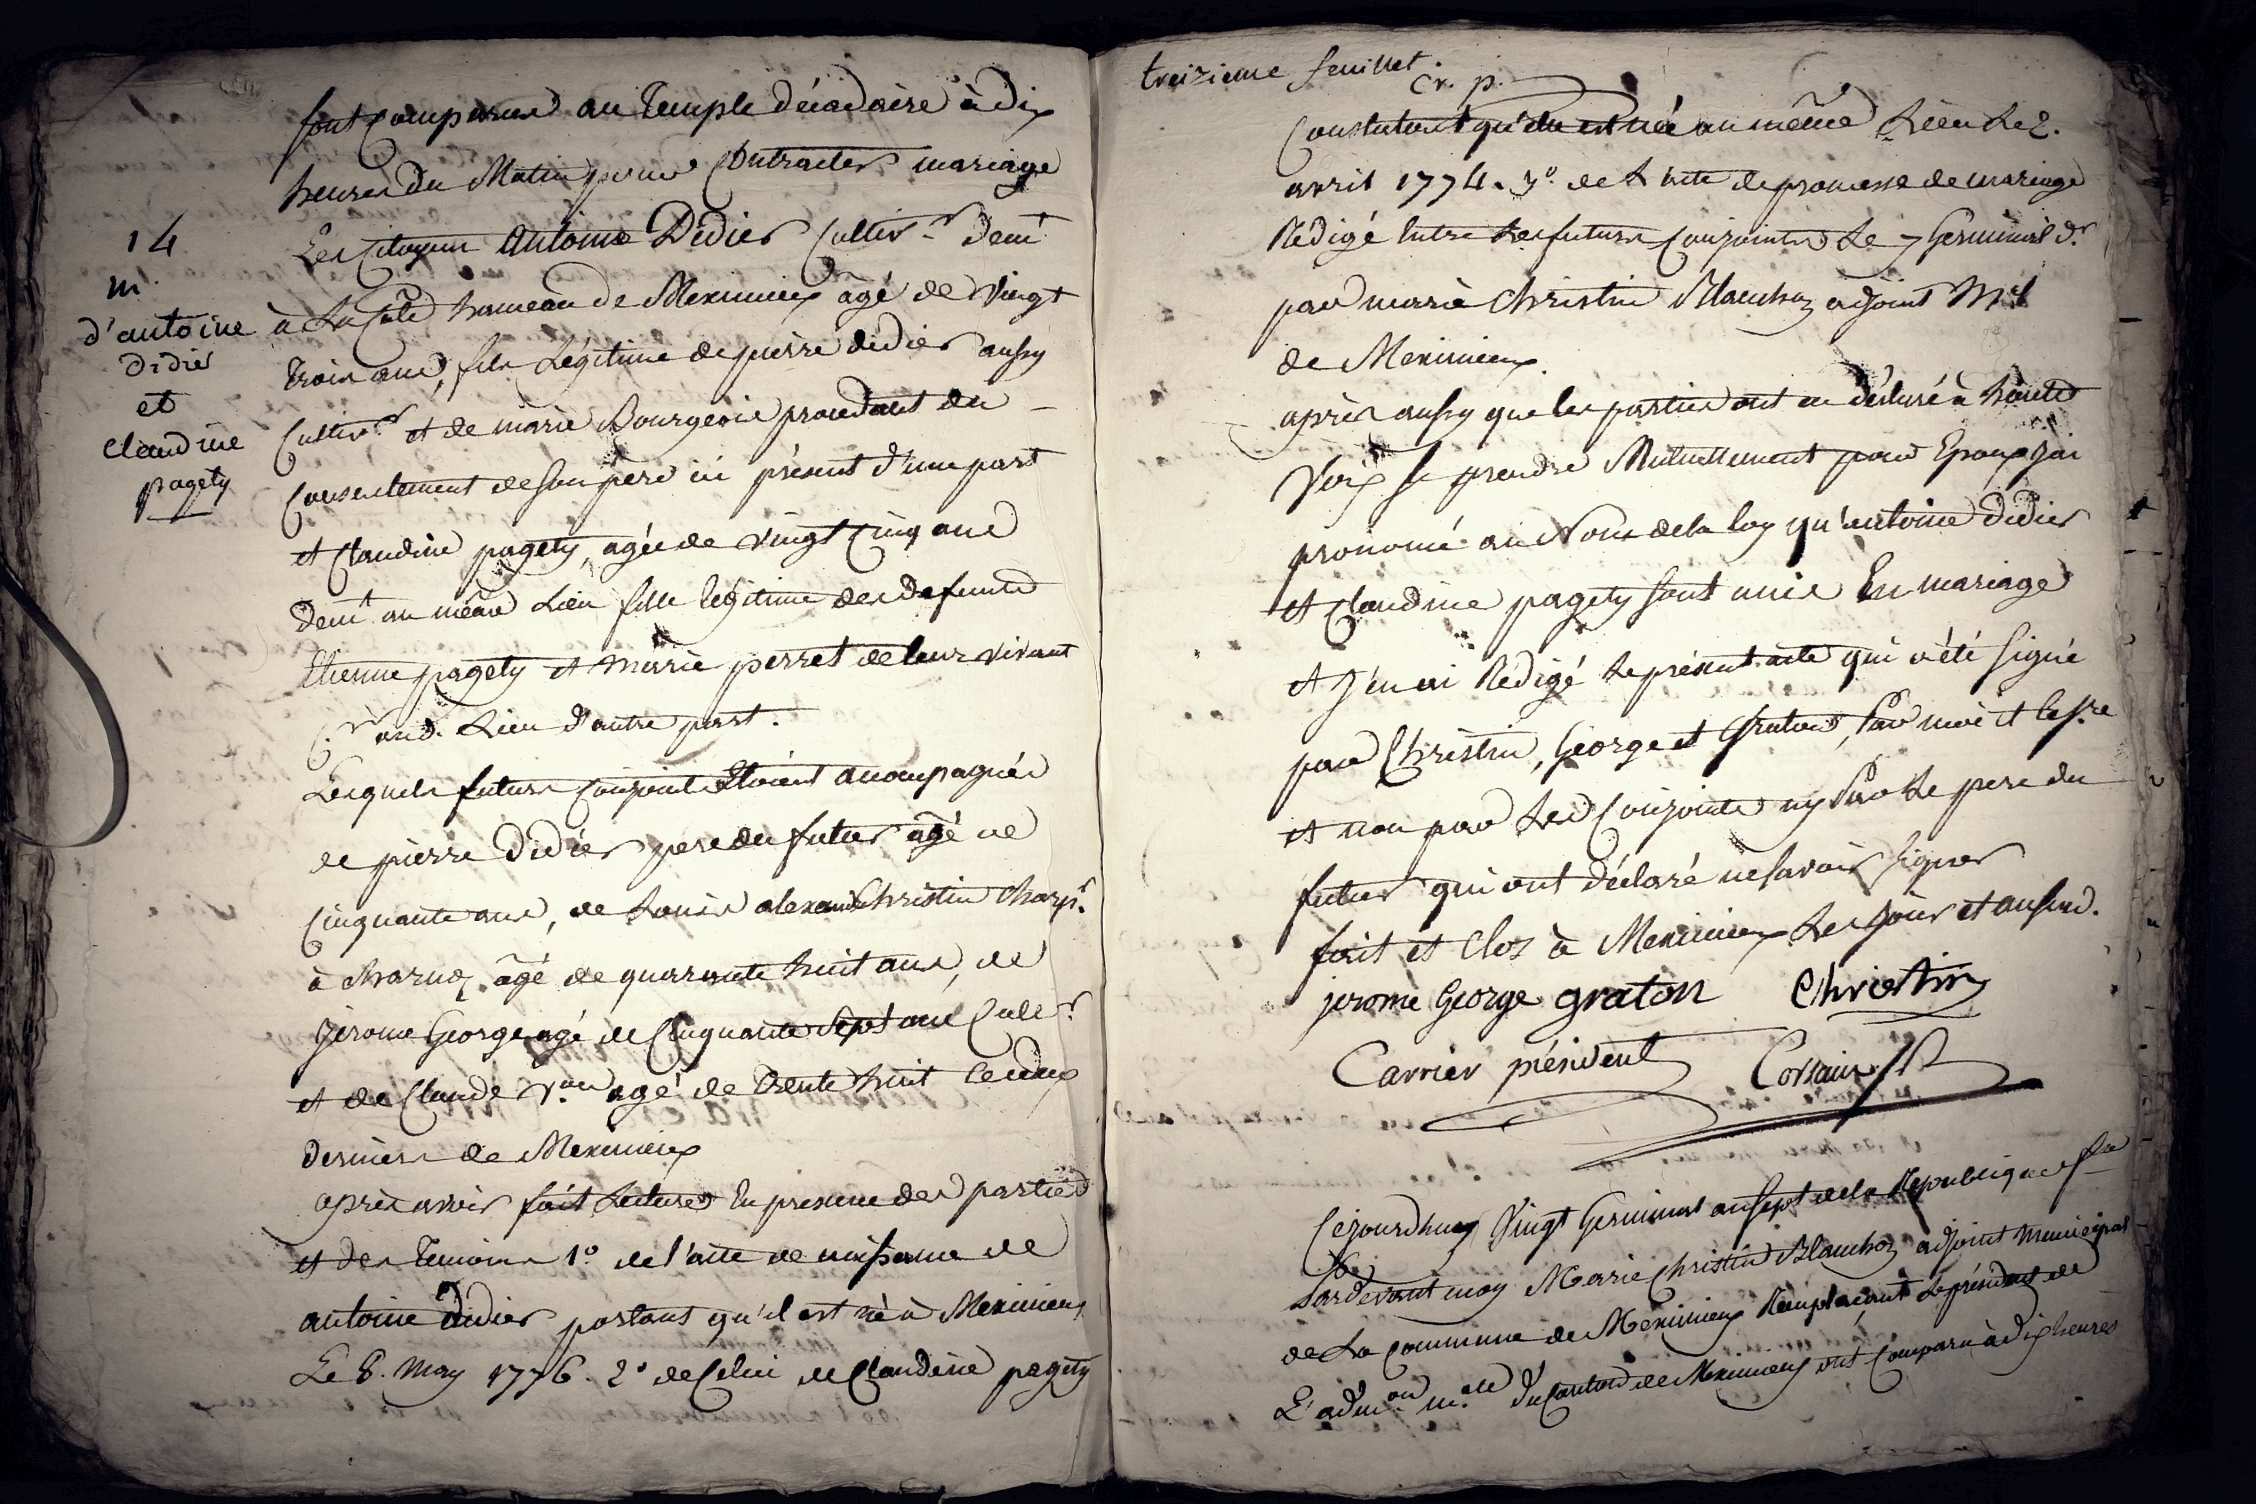 14
m.
d'antoine
didier
et
claudine
pagety
sont comparus au Temple décadaire à dix
heures du Matin pour Contracter mariage
Les Citoyens Antoine Didier Cultiv.r dem.t
à La Côte hameau de Meximieux âgé de Vingt
trois ans, fils Légitime de pierre didier aussy
Cultiv.r et de marie Bourgeois procédant du
Consentement de son père ici présent d'une part
et Claudine pagety, agée de vingt Cinq ans
dem.t au même Lieu fille légitime des defunts
Etienne pagety et marie perret de leur vivant
C.r aud. Lieu d'autre part.
Lesquels futurs conjoints Etoient accompagnés
de pierre Didier pere du futur âgé de
Cinquante ans, de Louis alexand Christin Charp.r
à Charnoz âgé de quarante huit ans, de
Jérome George agé de Cinquante Sept ans Cult.r
et de Claude agé de trente huit ces deux
derniers de Meximieux
après avoir fait Lecture En presence des parties
et des temoins 1.o de l'acte de naissance de
antoine didier portant qu'il est né à Meximieux
Le 8. May 1776. 2.o de Celui de Claudine pagety
treizieme feuillet.
Cr. p.
Constatant qu'elle est née au même Lieu Le 2.
avril 1774. 3.o de L'acte de promesse de mariage
Rédigé Entre Les futurs Conjoints Le 7 Germinal d.r
par marie Christin Blanchoz adjoint M.al
de Meximieux.
après aussy que les parties ont eu déclaré à haute
Voix se prendre Mutuellement pour Epoux J'ai
prononcé au Nom de la loy qu'antoine didier
et Claudine pagety sont unis En mariage
et J'en ai Rédigé Le présent acte qui a été signé
par Christin, George et Graton, Par moi et le s.re
et non par Les Conjoints ny Par Le pere du
futur qui ont déclaré ne savoir signer
fait et Clos à Meximieux Les Jour et an susd.
jerome George graton Christin
Carrier président
Cejourdhuy Vingt Germinal an sept de la République f.se
Pardevant moy Marie Christin Blanchoz adjoint municipal
de La commune de Meximieux Remplaçant Le président de
L'adm.on m.ale du Canton de Meximieux ont Comparu à dix heures